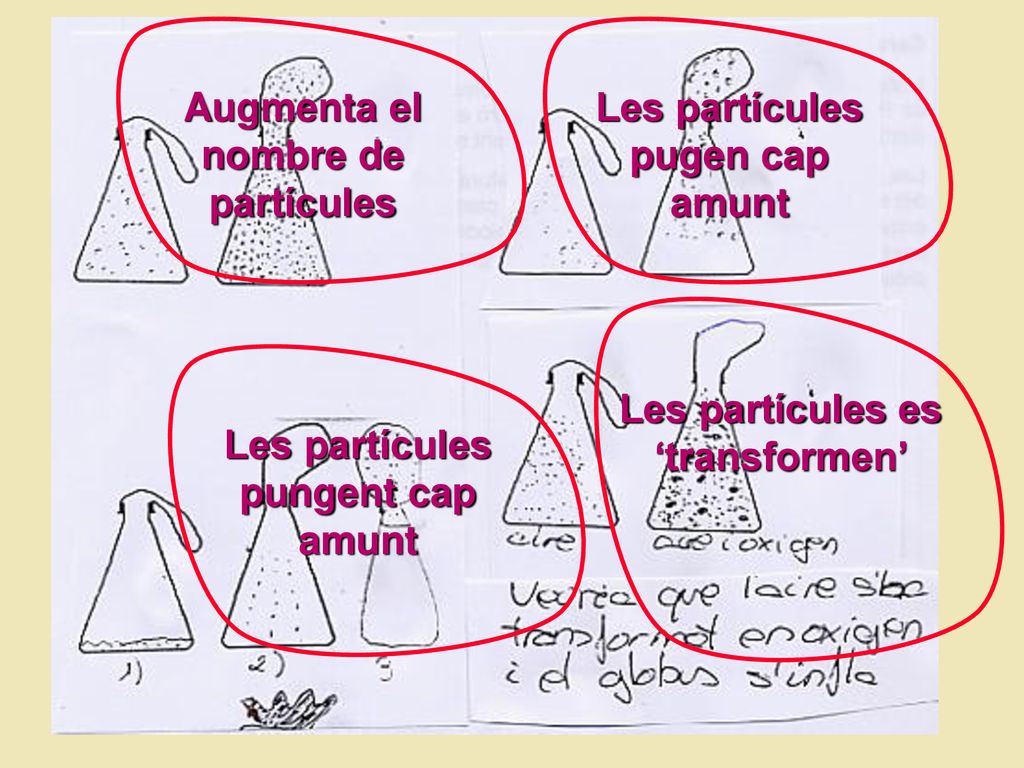 Augmenta el
nombre de
partícules
Les partícules
pugen cap
amunt
Les partícules
pungent cap
amunt
1) 2) 3
Les partícules es
‘transformen’
aire aire i oxigen
Veuria que l'aire s'ha
transformat en oxigen
i el globus s'infla